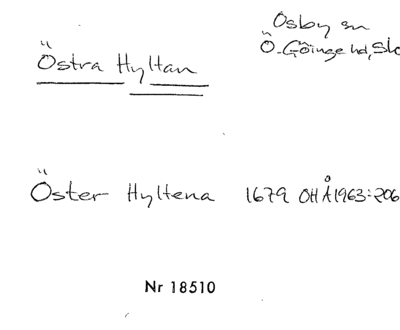 Osby sn
Östra Hyltan
Ö-Göinge hd, Sk
Öster Hyltena 1679 OHÅ1963:206
Nr 18510